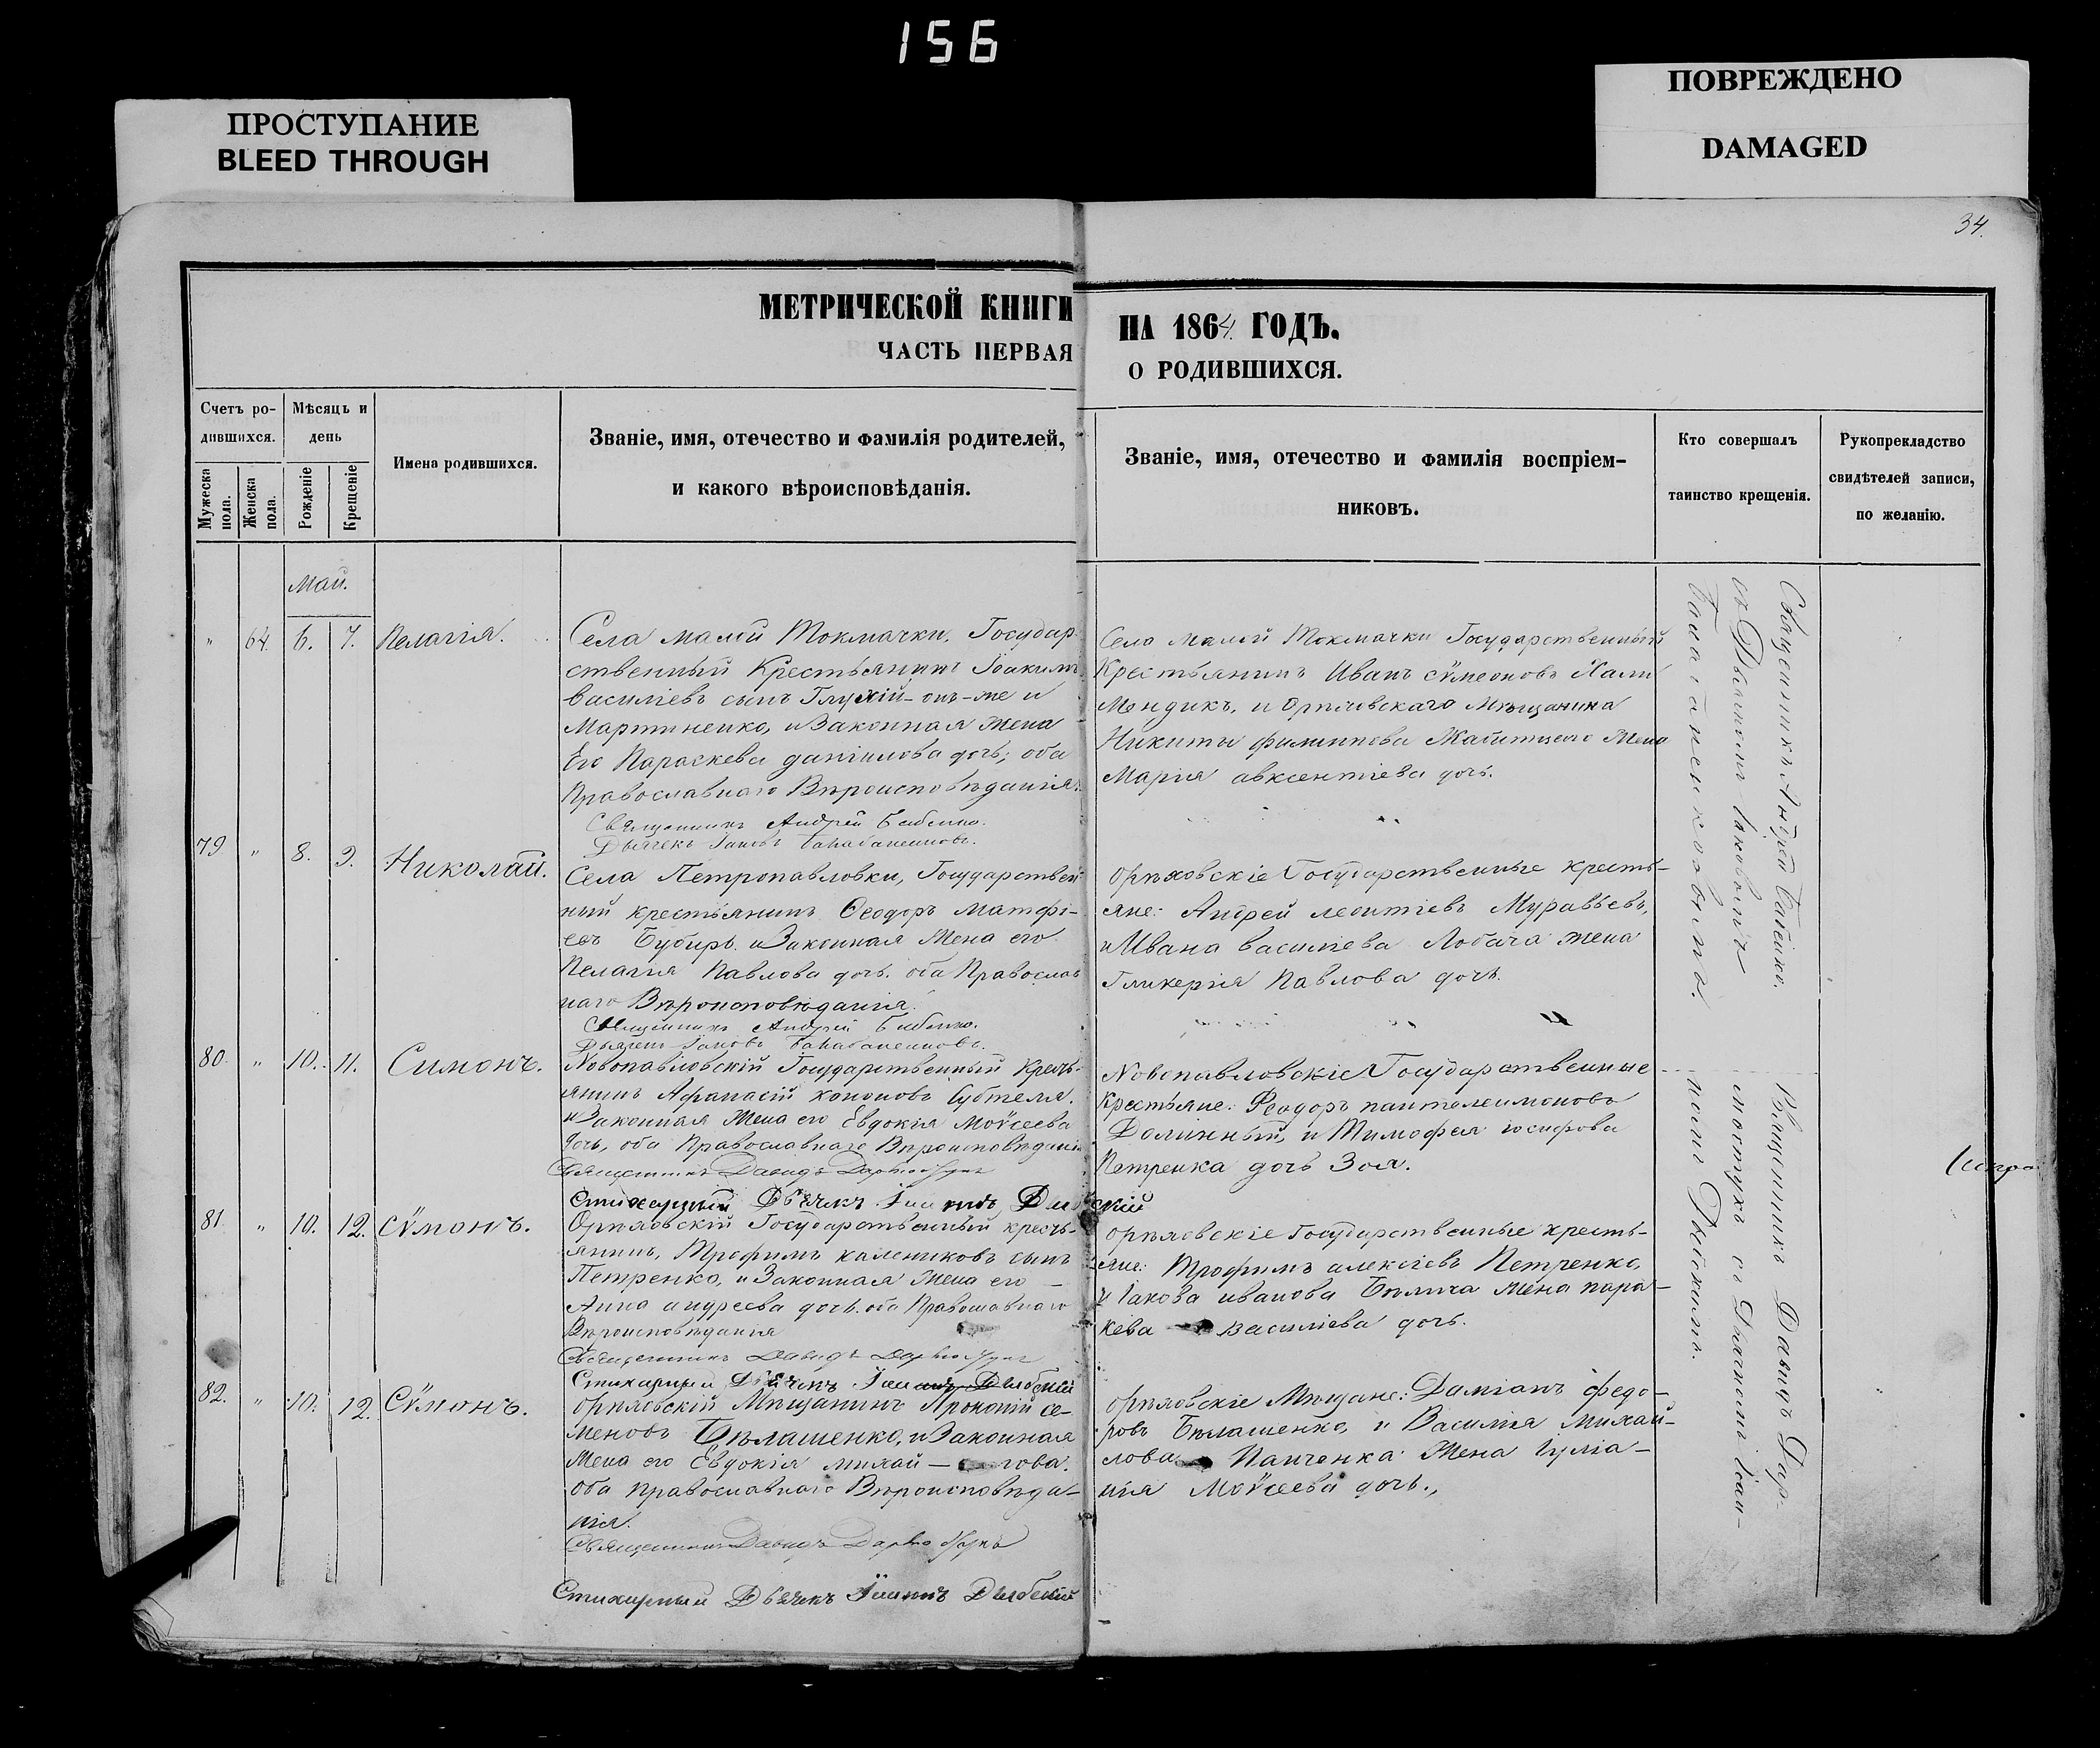 156
ПРОСТУПАНИЕ
BLEED THROUGH
ПОВРЕЖДЕНО
DAMAGED
34.
МЕТРИЧЕСКОЙ КНИГИ
ЧАСТЬ ПЕРВАЯ
НА 1864 ГОДЪ.
О РОДИВШИХСЯ.
Счетъ ро-
дившихся.
Мужеска
пола.
Женска
пола.
Мѣсяцъ и
день
Рожденіе
Крещеніе
Имена родившихся.
Званіе, имя, отечество и фамилія родителей,
и какого вѣроисповѣданія.
Званіе, имя, отечество и фамилія воспріем-
никовъ.
Кто совершалъ
таинство крещенія.
Рукоприкладство
свидѣтелей записи,
по желанію.
Май.
" 64. 6. 7. Пелагія.
Села малой Токмачки, Государ-
ственный Крестьянинъ Іоакимъ
Василіевъ сынъ Глухій-онъ-же и
Мартиненко, и Законная жена
Его Параскева даніилова дочь, оба
Православнаго Вѣроисповѣданія.
Священникъ Андрей Бабенко.
Дьячекъ Іаковъ
Села малой Токмачки Государственный
Крестьянинъ Иванъ сѵмеоновъ
Мендикъ, и Орѣховскаго Мѣщанина
Никиты филиппова жена
Марія авксентіева дочь.
79 " 8. 9. Николай.
Села Петропавловки, Государствен-
ный крестьянинъ Ѳеодоръ матфі-
евъ Бубиръ. и Законная Жена его
Пелагія Павлова дочь. оба Православ
наго Вѣроисповѣданія.
Священникъ Андрей Бабенко.
Дьячекъ Іаковъ
Орѣховскіе Государственные кресть-
яне: Андрей леонтіевъ Муравьевъ,
и Ивана василіева Лобача жена
Гликерія Павлова дочь.
80. " 10. 11. Симонъ.
Новопавловскій Государственный Кресть-
янинъ Афанасій кононовъ
и Законная Жена его Евдокія Моѵсеева
дочь, оба Православнаго Вѣроисповѣдані
Священникъ Давидъ
Стихарный Дьячекъ
Новопавловскіе Государственные
Крестьяне: Ѳеодоръ пантелеимоновъ
Долинный, и Тимофея іосифова
Петренка дочь Зоя.
81. " 10. 12. Сѵмонъ.
Орѣховскій Государственный кресть-
янинъ, Трофимъ калениковъ сынъ
Петренко, и Законная Жена его —
Анна андреева дочь. оба Православнаго
Вѣроисповѣданія
Священникъ Давидъ
Стихарный Дьячекъ
Орѣховскіе Государственные кресть-
яне: Трофимъ алексіевъ Петренко,
и Іакова иванова Бѣлича жена пара-
кева василіева дочь.
82. " 10. 12. Сѵмонъ.
Орѣховскій Мѣщанинъ Прокопій се-
меновъ Бѣлашенко, и Законная
Жена его Евдокія михай—лова.
оба православнаго Вѣроисповѣда-
нія.
Священникъ Давидъ
Стихарный Дьячекъ
Орѣховскіе Мѣщане: Даміанъ федо-
ровъ Бѣлашенко, и Василія Михай-
лова Панченка Жена Іуліа-
нія Моѵсеева дочь.,
Священникъ Андрей Бабенко.
съ Дьячкомъ Іаковомъ
Священникъ Давидъ
съ Дьячкомъ